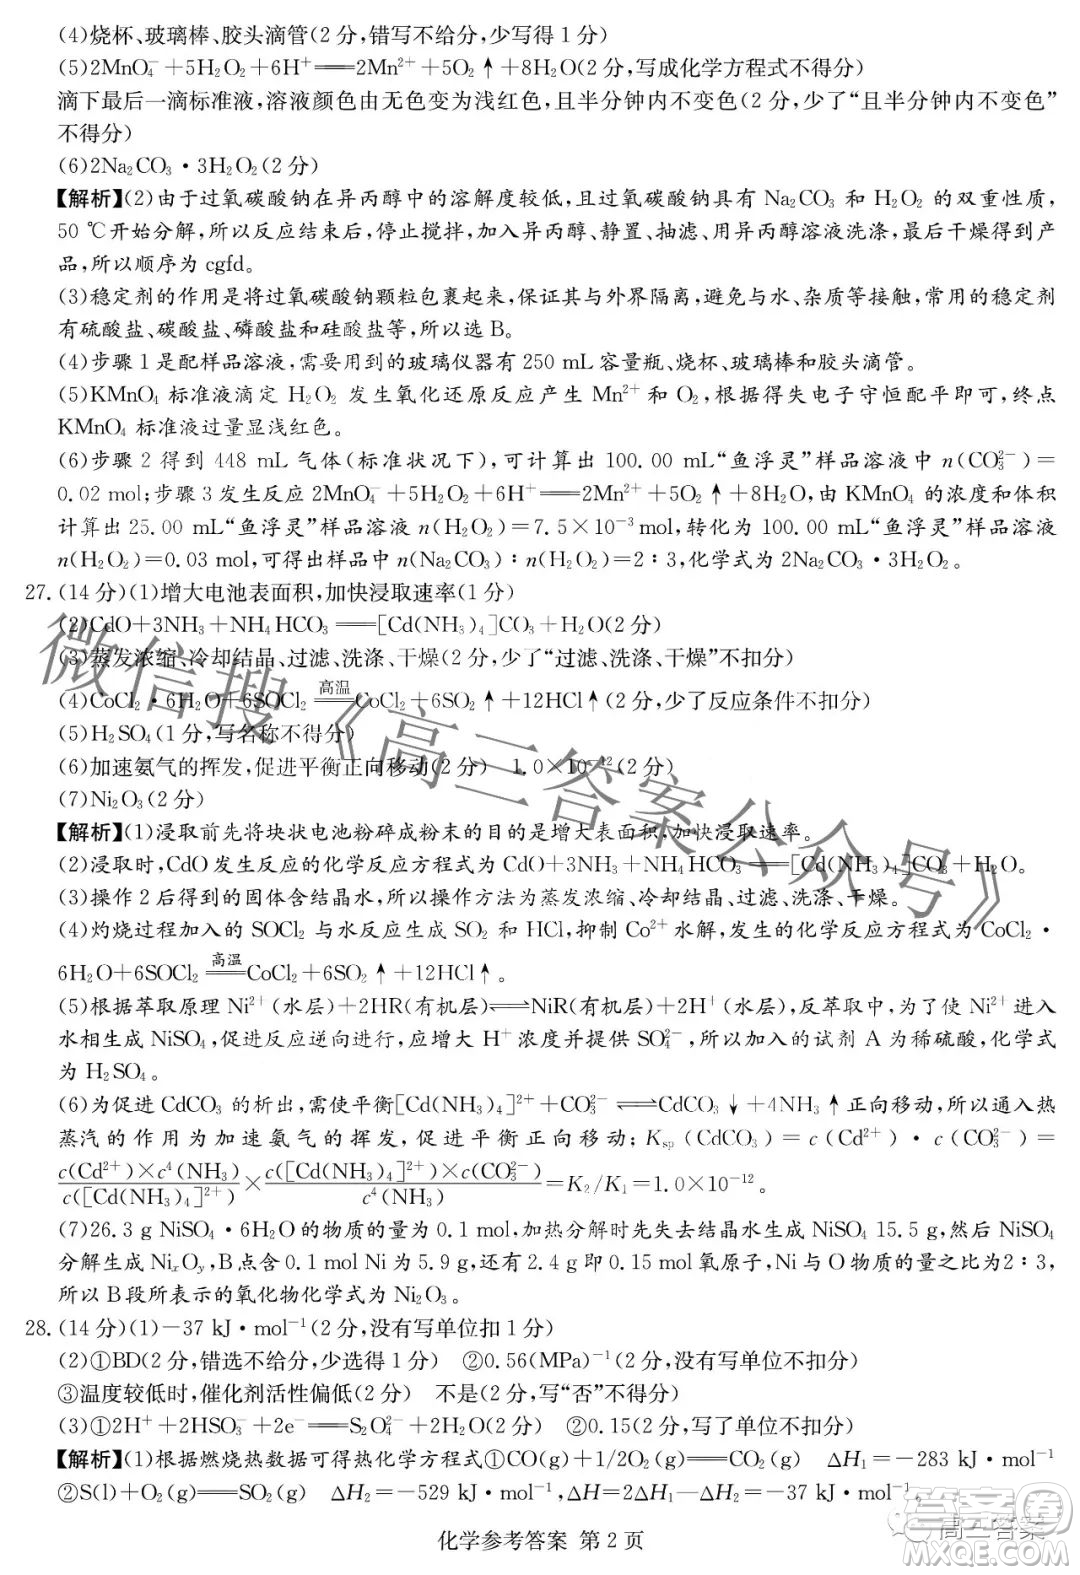 (4)烧杯、玻璃棒、胶头滴管(2分,错写不给分,少写得1分)
(5)2MnO₄⁻+5H₂O₂+6H⁺══2Mn²⁺+5O₂↑+8H₂O(2分,写成化学方程式不得分)
滴下最后一滴标准液,溶液颜色由无色变为浅红色,且半分钟内不变色(2分,少了“且半分钟内不变色”
不得分)
(6)2Na₂CO₃·3H₂O₂(2分)
【解析】(2)由于过氧碳酸钠在异丙醇中的溶解度较低,且过氧碳酸钠具有 Na₂CO₃ 和 H₂O₂ 的双重性质,
50 ℃开始分解,所以反应结束后,停止搅拌,加入异丙醇、静置、抽滤、用异丙醇溶液洗涤,最后干燥得到产
品,所以顺序为 cgfd。
(3)稳定剂的作用是将过氧碳酸钠颗粒包裹起来,保证其与外界隔离,避免与水、杂质等接触,常用的稳定剂
有硫酸盐、碳酸盐、磷酸盐和硅酸盐等,所以选 B。
(4)步骤 1 是配样品溶液,需要用到的玻璃仪器有 250 mL 容量瓶、烧杯、玻璃棒和胶头滴管。
(5)KMnO₄ 标准液滴定 H₂O₂ 发生氧化还原反应产生 Mn²⁺ 和 O₂,根据得失电子守恒配平即可,终点
KMnO₄ 标准液过量显浅红色。
(6)步骤 2 得到 448 mL 气体(标准状况下),可计算出 100.00 mL“鱼浮灵”样品溶液中 n(CO₃²⁻)=
0.02 mol;步骤 3 发生反应 2MnO₄⁻+5H₂O₂+6H⁺══2Mn²⁺+5O₂↑+8H₂O,由 KMnO₄ 的浓度和体积
计算出 25.00 mL“鱼浮灵”样品溶液 n(H₂O₂)=7.5×10⁻³ mol,转化为 100.00 mL“鱼浮灵”样品溶液
n(H₂O₂)=0.03 mol,可得出样品中 n(Na₂CO₃)∶n(H₂O₂)=2∶3,化学式为 2Na₂CO₃·3H₂O₂。
27.(14分)(1)增大电池表面积,加快浸取速率(1分)
(2)CdO+3NH₃+NH₄HCO₃══[Cd(NH₃)₄]CO₃+H₂O(2分)
(3)蒸发浓缩、冷却结晶、过滤、洗涤、干燥(2分,少了“过滤、洗涤、干燥”不扣分)
(4)CoCl₂·6H₂O+6SOCl₂ ══高温══ CoCl₂+6SO₂↑+12HCl↑(2分,少了反应条件不扣分)
(5)H₂SO₄(1分,写名称不得分)
(6)加速氨气的挥发,促进平衡正向移动(2分) 1.0×10⁻¹²(2分)
(7)Ni₂O₃(2分)
【解析】(1)浸取前先将块状电池粉碎成粉末的目的是增大表面积,加快浸取速率。
(2)浸取时,CdO 发生反应的化学反应方程式为 CdO+3NH₃+NH₄HCO₃══[Cd(NH₃)₄]CO₃+H₂O。
(3)操作 2 后得到的固体含结晶水,所以操作方法为蒸发浓缩、冷却结晶、过滤、洗涤、干燥。
(4)灼烧过程加入的 SOCl₂ 与水反应生成 SO₂ 和 HCl,抑制 Co²⁺ 水解,发生的化学反应方程式为 CoCl₂·
6H₂O+6SOCl₂ ══高温══ CoCl₂+6SO₂↑+12HCl↑。
(5)根据萃取原理 Ni²⁺(水层)+2HR(有机层)⇌NiR(有机层)+2H⁺(水层),反萃取中,为了使 Ni²⁺ 进入
水相生成 NiSO₄,促进反应逆向进行,应增大 H⁺ 浓度并提供 SO₄²⁻,所以加入的试剂 A 为稀硫酸,化学式
为 H₂SO₄。
(6)为促进 CdCO₃ 的析出,需使平衡[Cd(NH₃)₄]²⁺+CO₃²⁻⇌CdCO₃↓+4NH₃↑正向移动,所以通入热
蒸汽的作用为加速氨气的挥发,促进平衡正向移动;Ksp(CdCO₃)=c(Cd²⁺)·c(CO₃²⁻)=
c(Cd²⁺)×c⁴(NH₃)/c([Cd(NH₃)₄]²⁺)×c([Cd(NH₃)₄]²⁺)×c(CO₃²⁻)/c⁴(NH₃)=K₂/K₁=1.0×10⁻¹²。
(7)26.3 g NiSO₄·6H₂O 的物质的量为 0.1 mol,加热分解时先失去结晶水生成 NiSO₄ 15.5 g,然后 NiSO₄
分解生成 NiₓOᵧ,B 点含 0.1 mol Ni 为 5.9 g,还有 2.4 g 即 0.15 mol 氧原子,Ni 与 O 物质的量之比为 2∶3,
所以 B 段所表示的氧化物化学式为 Ni₂O₃。
28.(14分)(1)-37 kJ·mol⁻¹(2分,没有写单位扣1分)
(2)①BD(2分,错选不给分,少选得1分) ②0.56(MPa)⁻¹(2分,没有写单位不扣分)
③温度较低时,催化剂活性偏低(2分) 不是(2分,写“否”不得分)
(3)①2H⁺+2HSO₃⁻+2e⁻══S₂O₄²⁻+2H₂O(2分) ②0.15(2分,写了单位不扣分)
【解析】(1)根据燃烧热数据可得热化学方程式①CO(g)+1/2O₂(g)══CO₂(g) ΔH₁=-283 kJ·mol⁻¹
②S(l)+O₂(g)══SO₂(g) ΔH₂=-529 kJ·mol⁻¹,ΔH=2ΔH₁-ΔH₂=-37 kJ·mol⁻¹。
化学参考答案 第 2 页
微信搜《高三答案公众号》
高三答案
答案圈
MXQE.COM